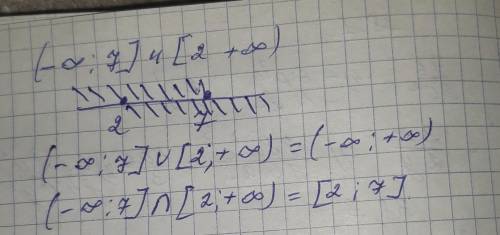 (-∞; 7] и [2 +∞)
2 7
(-∞; 7] ∪ [2; +∞) = (-∞; +∞)
(-∞; 7] ∩ [2; +∞) = [2; 7]